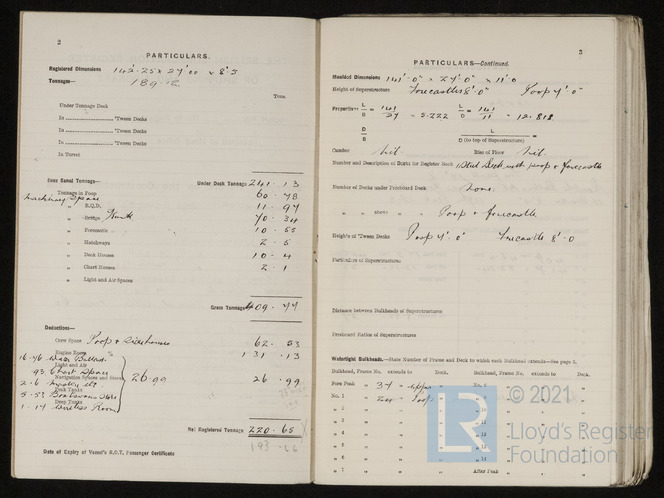 2
PARTICULARS.
Registered Dimensions 142·25 x 27'·00 x 8'·2
Tonnage—
Tons.
Under Tonnage Deck
In 'Tween Decks
In 'Tween Decks
In 'Tween Decks
In Turret
Under Deck Tonnage 241·13
Tonnage in Poop 60·78
Machinery Space
„ R.Q.D. 11·97
„ Bridge 70·34
„ Forecastle 10·55
„ Hatchways 2·5
„ Deck Houses 10·4
„ Chart Houses 2·1
„ Light and Air Spaces
Gross Tonnage 409·77
Deductions—
Crew Space Poop & Sidehouses 62·53
Engine Room % 131·13
16·46 Water Ballast
Light and Air
·93 Chart Space
Navigation Spaces and Stores 26·99 26·99
2·6
Peak Tanks
5·57 Boatswains Store
Deep Tanks
1·17 Wireless Room
Net Registered Tonnage 220·65
193·66
Date of Expiry of Vessel's B.O.T. Passenger Certificate
3
PARTICULARS—Continued.
Moulded Dimensions 141'·0" x 27'·0" x 11'·0
Height of Superstructure Forecastle 8'·0" Poop 7'·0"
Proportions L/B = 141/27 = 5.222 L/D = 141/11 = 12.818
D/B = L/D (to top of Superstructure) =
Camber Nil. Rise of Floor Nil.
Number and Description of Decks for Register Book 1 Steel Deck with poop & forecastle
Number of Decks under Freeboard Deck None.
„ „ above „ „ Poop & forecastle
Heights of 'Tween Decks Poop 7'·0" Forecastle 8'·0
Particulars of Superstructures
Distance between Bulkheads of Superstructures
Freeboard Ratios of Superstructures
Watertight Bulkheads.—State Number of Frame and Deck to which each Bulkhead extends—See page 2.
Bulkhead, Frame No. extends to Deck. Bulkhead, Frame No. extends to Deck.
Fore Peak „ 37 „ upper No. 8 „ „
No. 1 „ „ Poop „ 9 „ „
„ 2 „ „ „ 10 „ „
„ 3 „ „
„ 4 „ „
„ 5 „ „
„ 6 „ „ „ 14 „ „
„ 7 „ „ After Peak „ „
LR © 2021
Lloyd's Register
Foundation